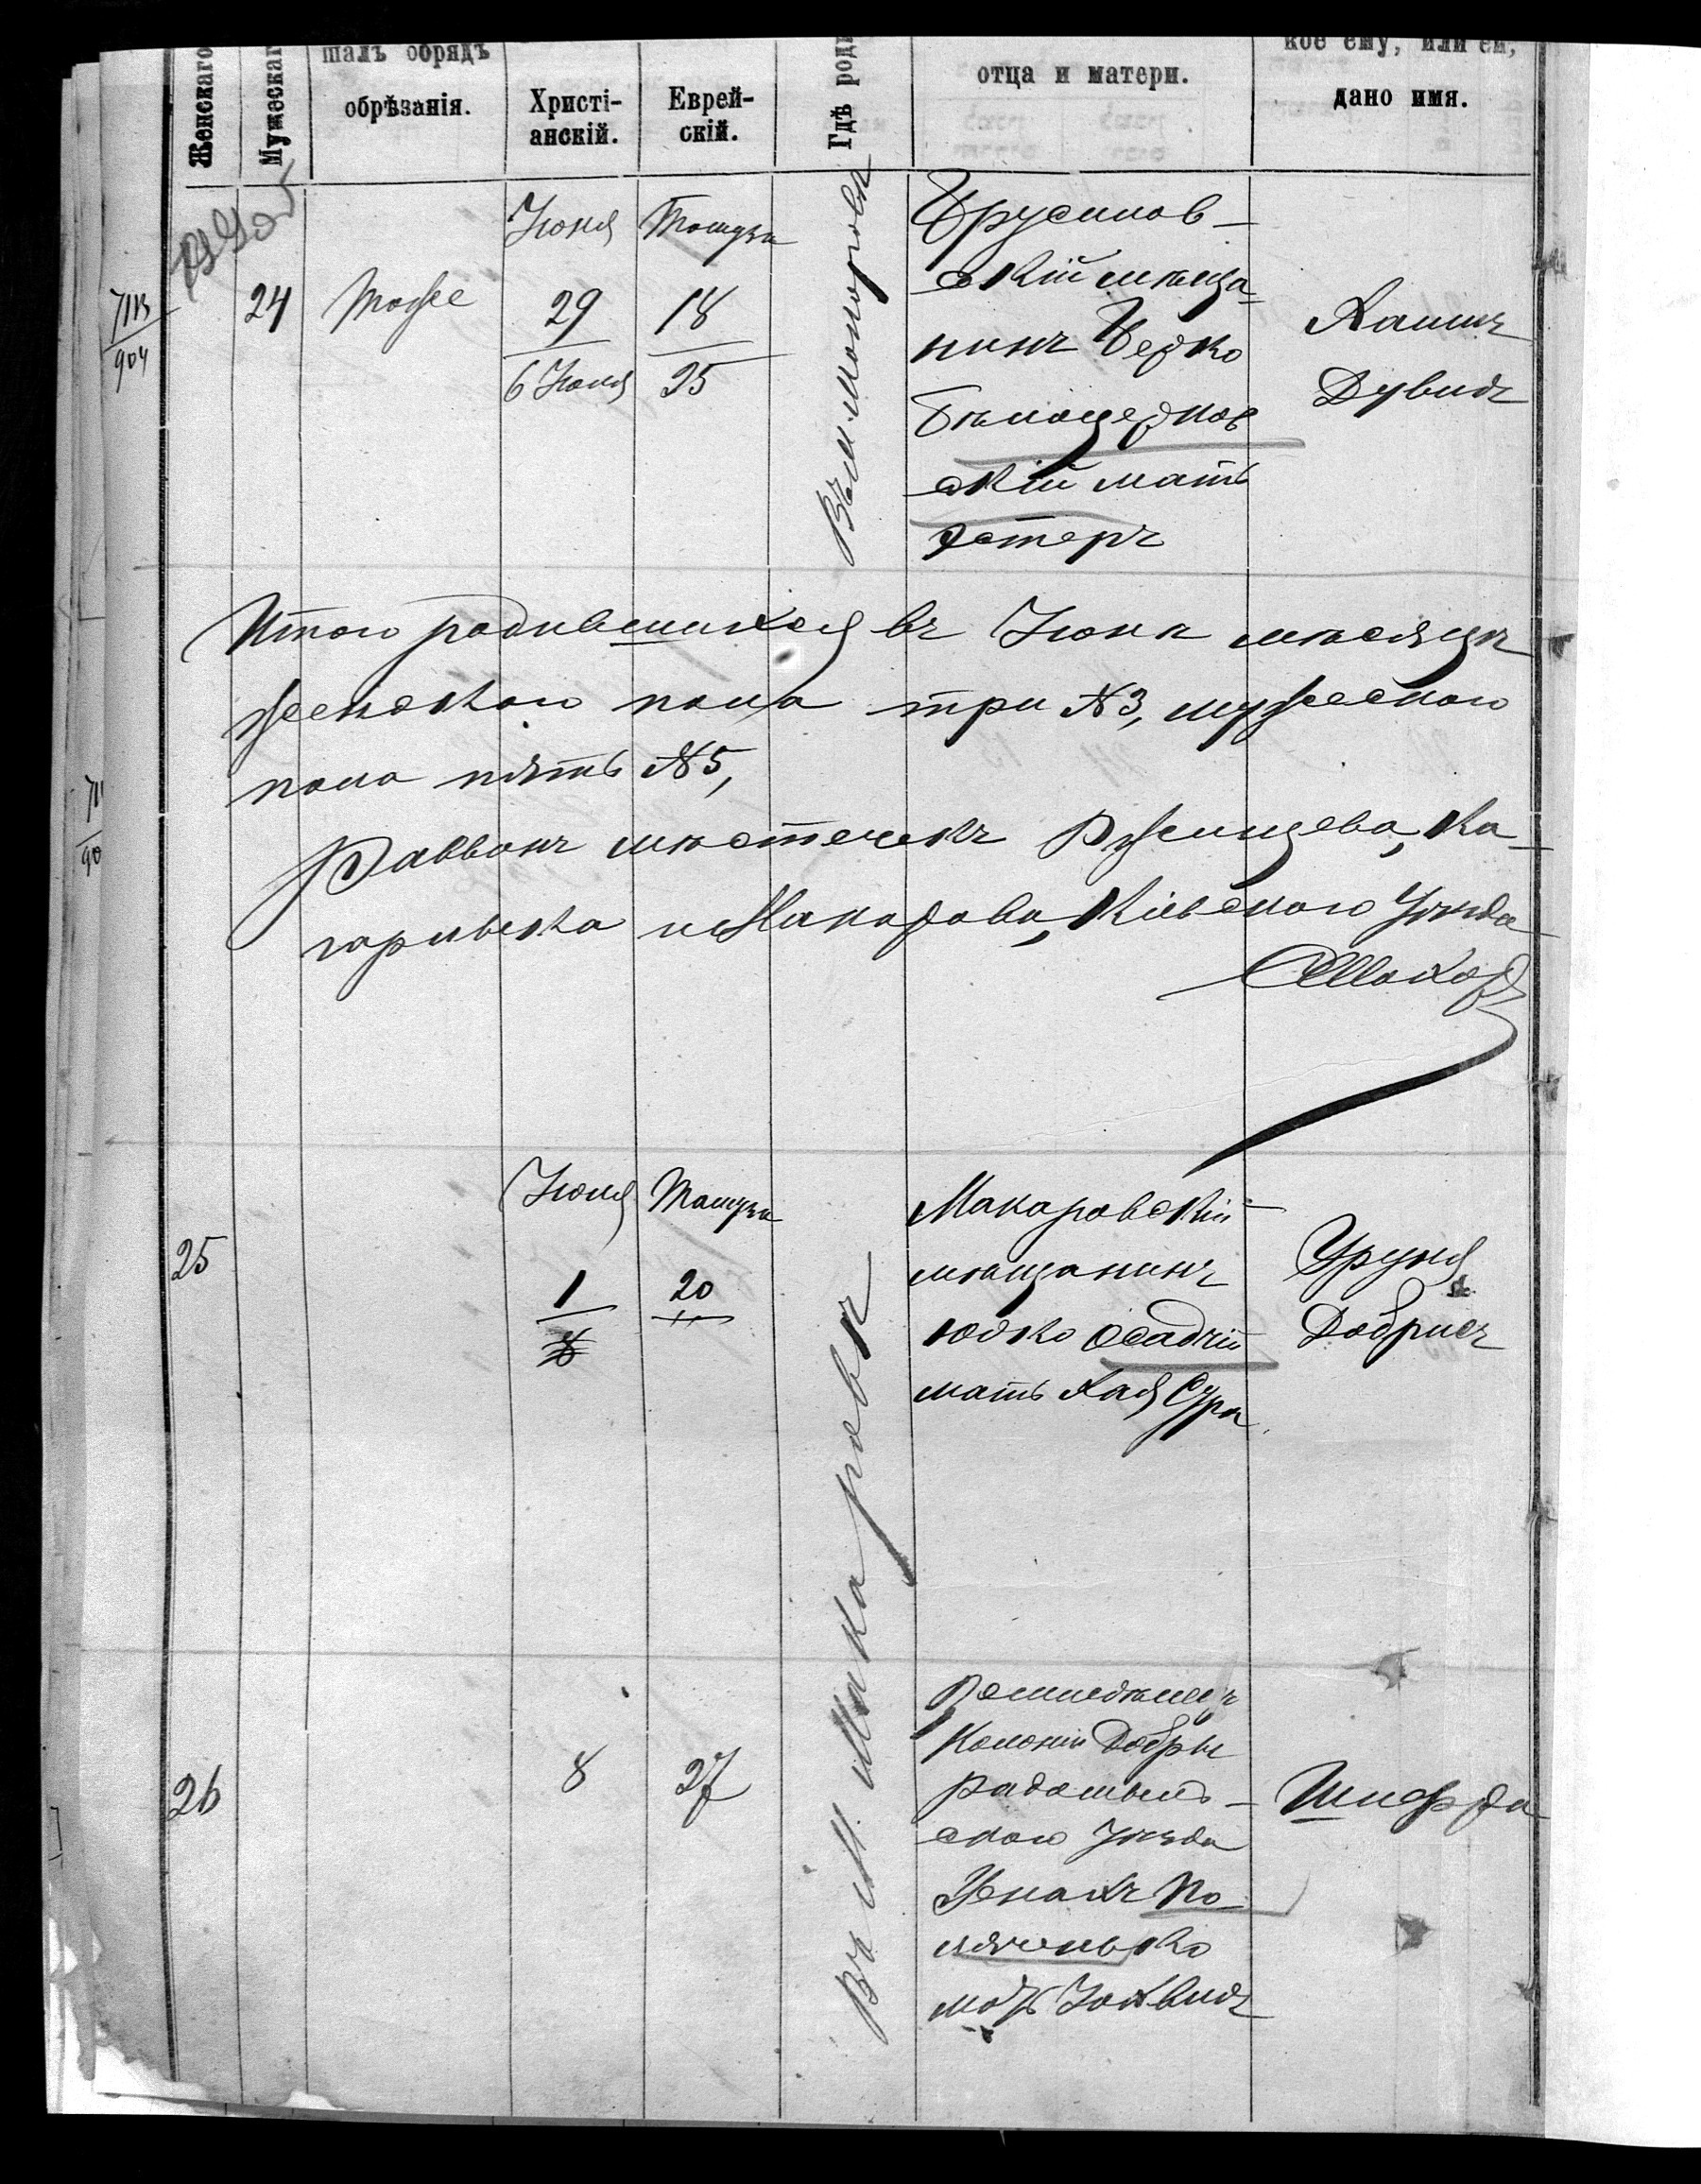 Женскаго
Мужескаг
шалъ обрядъ
обрѣзанія.
Христі-
анскій.
Еврей-
скій.
Гдѣ роди
отца и матери.
кое ему, или ей,
дано имя.
24
Тоже
Іюня
29
6 Іюля
Тамуза
18
25
Въ м. Макаровѣ
Брусилов-
скій мѣща-
нинъ Берко
Бѣлоцерков
скій мать
Эстеръ
Хаимъ
Дувидъ
Итого родившихся въ Іюнѣ мѣсяцѣ
женскаго пола три №3, мужескаго
пола пять №5,
Раввинъ мѣстечекъ Ржищева, Ка-
гарлыка и Макарова, Кіевскаго Уѣзда
25
Іюля
1
8
Тамуза
20
Въ м. Макаровѣ
Макаровскій
мѣщанинъ
Юдко Осадчій
мать Хая Сура
Фруня
Добрисъ
26
8
27
колоніи Добрый
Радомысль-
скаго Уѣзда
По-
ляченько
мать Іохвидъ
Шифра